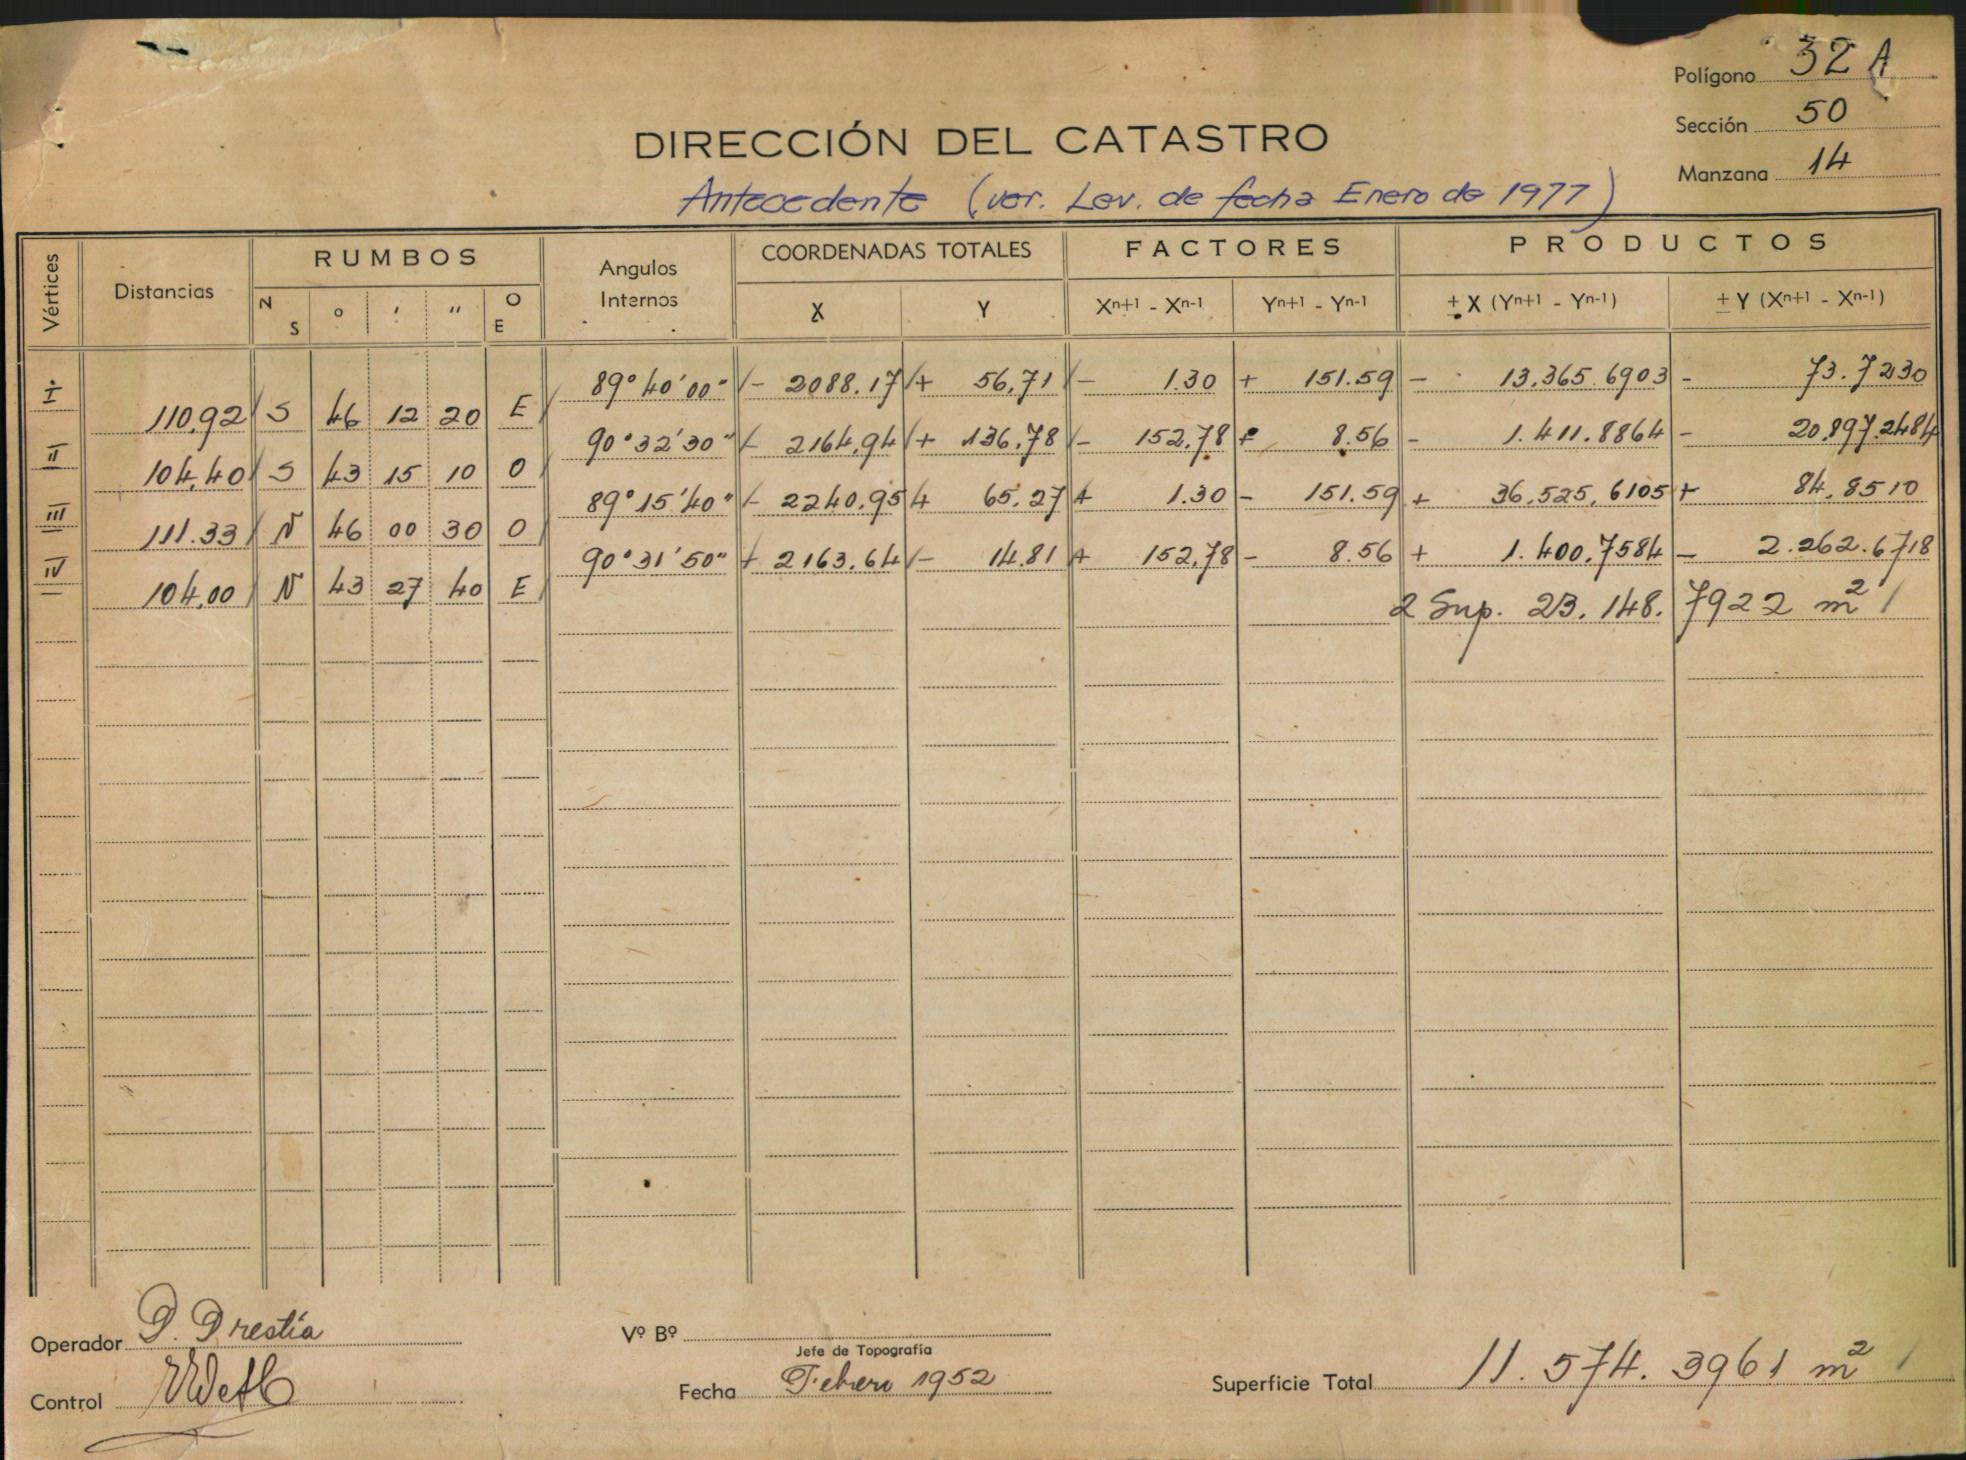 Polígono 32 A
Sección 50
Manzana 14
DIRECCIÓN DEL CATASTRO
Antecedente (ver. Lev. de fecha Enero de 1977)
Vértices Distancias RUMBOS Angulos Internos COORDENADAS TOTALES FACTORES PRODUCTOS
N S ° ' " O E X Y Xn+1 - Xn-1 Yn+1 - Yn-1 ± X (Yn+1 - Yn-1) ± Y (Xn+1 - Xn-1)
I 89° 40' 00" - 2088.17 + 56,71 - 1.30 + 151.59 - 13,365.6903 - 73.7230
110,92 S 46 12 20 E
II 90° 32' 30" - 2164,94 + 136,78 - 152,78 + 8.56 - 1.411.8864 - 20,897.2484
104,40 S 43 15 10 O
III 89° 15' 40" - 2240,95 + 65,27 + 1.30 - 151.59 + 36,525,6105 + 84,8510
111.33 N 46 00 30 O
IV 90° 31' 50" + 2163,64 - 14.81 + 152,78 - 8.56 + 1.400,7584 - 2.262.6718
104,00 N 43 27 40 E
2 Sup. 23.148.7922 m²
Operador
Vº Bº
Jefe de Topografía
Control
Fecha Febrero 1952
Superficie Total 11.574.3961 m²